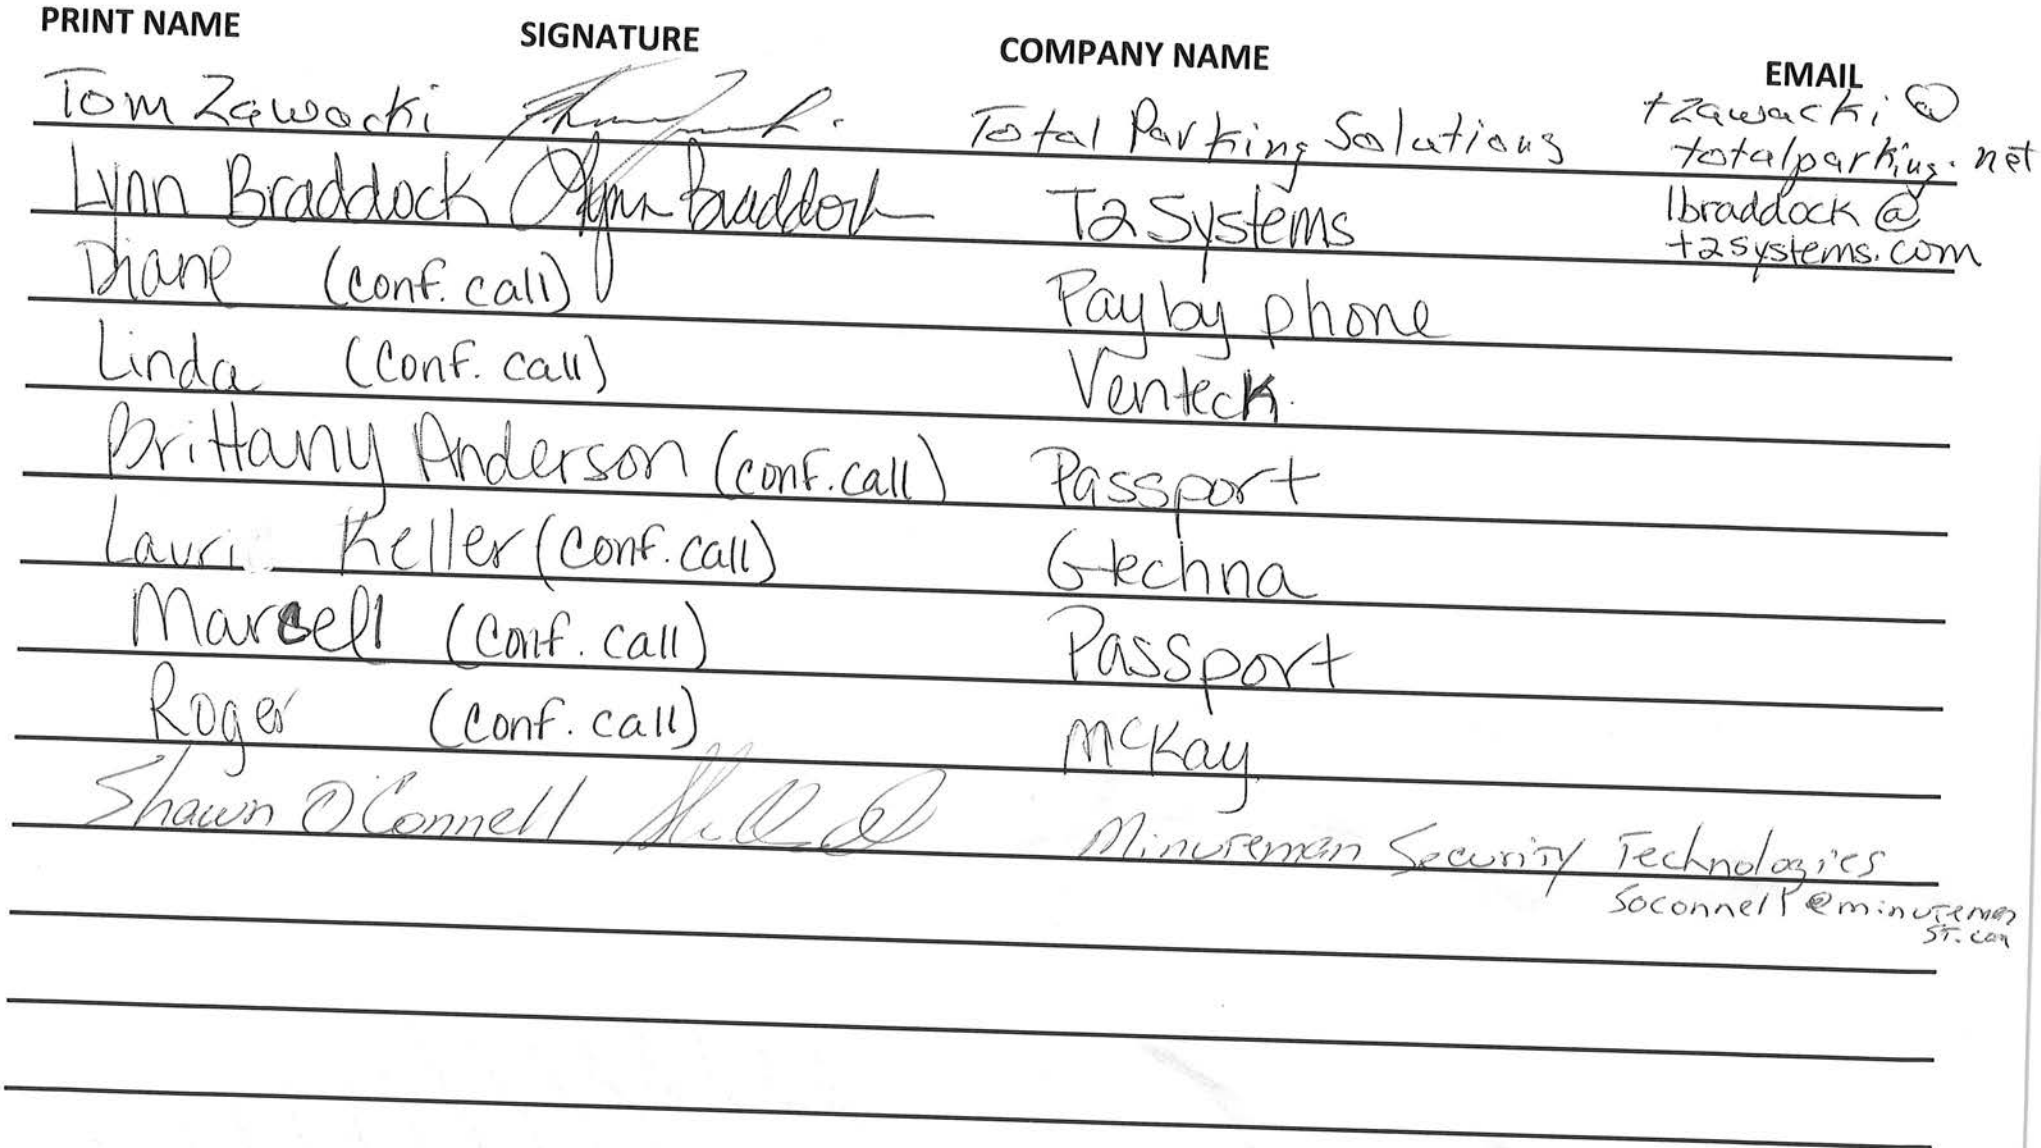 PRINT NAME SIGNATURE COMPANY NAME EMAIL
Tom Zawacki Total Parking Solutions tzawacki@
totalparking.net
Lynn Braddock Lynn Braddock T2 Systems lbraddock@
t2systems.com
Diane (conf. call) Pay by phone
Linda (conf. call) Venteck
Brittany Anderson (conf. call) Passport
Lauri Keller (conf. call) Gtechna
Marcell (conf. call) Passport
Roger (conf. call) McKay
Shawn O'Connell Minuteman Security Technologies
soconnell@minuteman
st.com